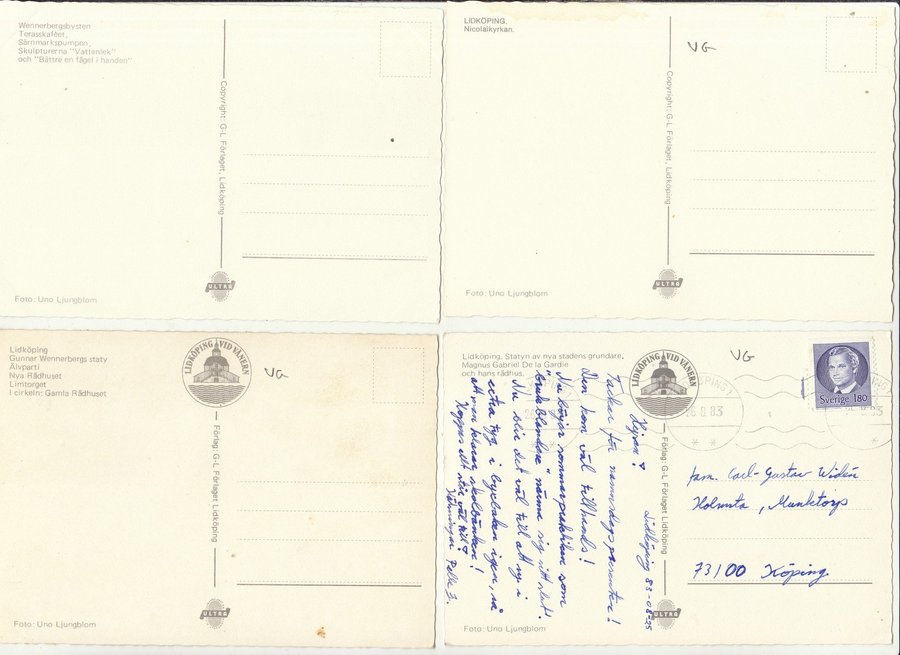 Wennerbergsbysten
Terasskaféet,
Särnmarkspumpen,
Skulpturerna "Vattenlek"
och "Bättre en fågel i handen"
Copyright: G-L Förlaget, Lidköping
ULTRA
Foto: Uno Ljungblom
LIDKÖPING.
Nicolaikyrkan.
VG
Copyright: G-L Förlaget, Lidköping
ULTRA
Foto: Uno Ljungblom
Lidköping
Gunnar Wennerbergs staty
Älvparti
Nya Rådhuset
Limtorget
I cirkeln: Gamla Rådhuset
LIDKÖPING VID VÄNERN
VG
Förlag: G-L Förlaget Lidköping
ULTRA
Foto: Uno Ljungblom
Lidköping. Statyn av nya stadens grundare,
Magnus Gabriel De la Gardie
och hans rådhus.
LIDKÖPING VID VÄNERN
VG
Sverige 180
Förlag: G-L Förlaget Lidköping
Lidköping 83-08-25
Hejsan!
Tackar för namnsdagspresenten!
Den kom väl tillhands!
Nu börjar sommarpraktiken som
"brukblandare" närma sig sitt slut!
Nu blir det väl till att ny i
extra tyg i byxbaken igen, så
att man klarar skolbänken!
Hoppas allt står väl till!
Hälsningar Pelle J.
fam. Carl-Gustav Widén
Holmsta, Munktorp
73100 Köping
ULTRA
Foto: Uno Ljungblom